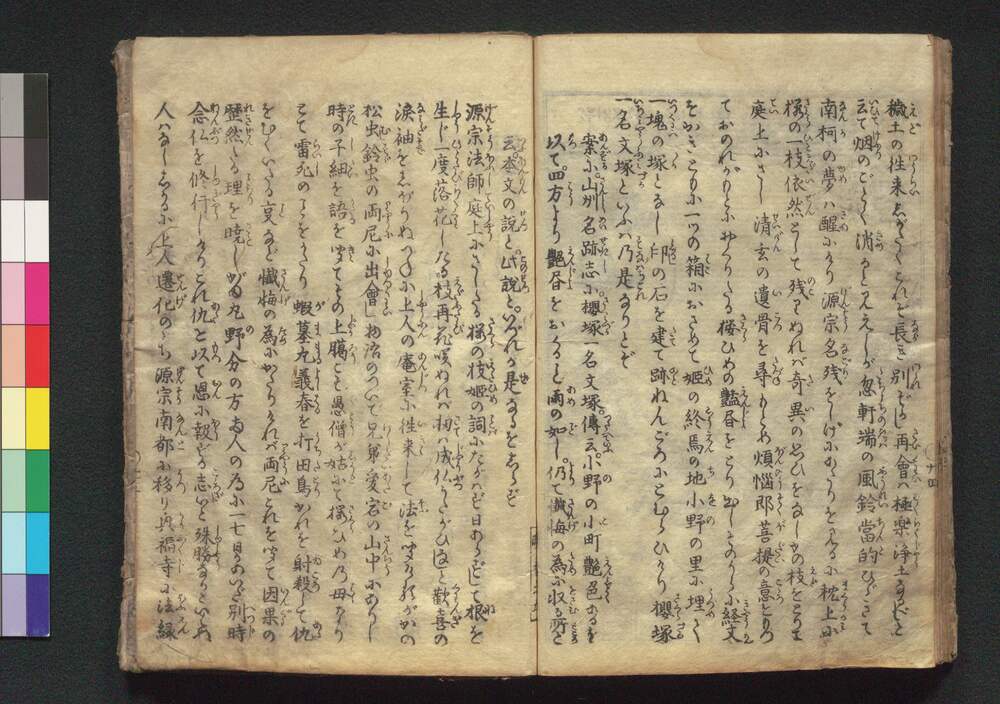 穢土の往来志ばらくこれぞ長き別なりし再會ハ極楽浄土なりと
云て烟のごとく消ると見えしが忽軒端の風鈴當的ひゞきて
南柯の夢ハ醒にけり源宗名残をしげにあたりを見るに枕上に
桜の一枝依然として残りぬれバ奇異の思ひをなしかの枝をとりて
庭上にさし清玄の遺骨を尋もとめ煩惱即菩提の意とりつ
ておのれがもとにおくりたる桜ひめの艶書をとり出しそのうらに経文
をかきとり一ツの箱におさめて姫の終焉の地小野の里に埋て
一塊の塚となし印の石を建て跡ねんごろにとむらひけり櫻塚
一名文塚といふハ乃是なりとぞ
案に山州名跡志に櫻塚一名文塚傳云小野の小町艶色あるを
以て四方より艶書をおくること雨の如し仍て懺悔の為に収る所と
云本文の説と此説といづれか是なるをしらず
源宗法師庭上にさしたる桜の枝姫の詞にたがハず日あらずして根を
生じ一度落花したる枝再花咲ぬれバ扨ハ成仏うたがひなしと歡喜の
涙袖をしぼりぬつねに上人の庵室に往来して法を聞けるがかの
松虫鈴虫の両尼に出會し物語のついで兄弟愛宕の山中にありし
時の子細を語を聞てその上臈こそ愚僧が姑にて桜ひめの母なり
とて雷死のことをかたり蝦蟇丸義春を打田鳥かれを射殺して仇
をむくいたる変など懺悔の為にかたりけれバ両尼これを聞て因果の
歴然たる理を暁しがま丸野分の方両人の為に一七日のあいだ別時
念仏を修行しけりこれ仇を以て恩に報ずる志いと殊勝なりといふ
人ハなしとなん上人遷化のゝち源宗南都に移り興福寺に法縁